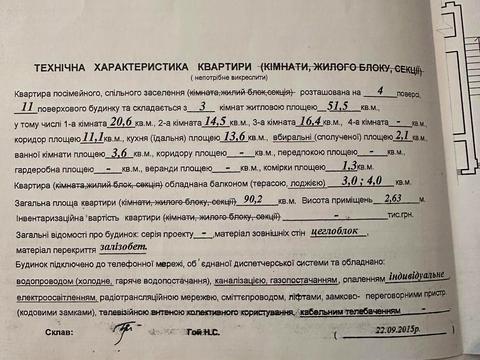 ТЕХНІЧНА ХАРАКТЕРИСТИКА КВАРТИРИ (КІМНАТИ, ЖИЛОГО БЛОКУ, СЕКЦІЇ)
( непотрібне викреслити)
Квартира посімейного, спільного заселення (кімната,жилий блок,секція) розташована на 4 поверсі
11 поверхового будинку та складається з 3 кімнат житловою площею 51,5 кв.м.,
у тому числі 1-а кімната 20,6 кв.м., 2-а кімната 14,5 кв.м., 3-а кімната 16,4 кв.м., 4-а кімната - кв.м.,
коридор площею 11,1 кв.м., кухня (їдальня) площею 13,6 кв.м., вбиральні (сполученої) площею 2,1 кв.м.,
ванної кімнати площею 3,6 кв.м., коридору площею - кв.м., передпокою площею - кв.м.,
гардеробна площею - кв.м., веранди площею - кв.м., комірки площею 1,3 кв.м.
Квартира (кімната,жилий блок, секція) обладнана балконом (терасою, лоджією) 3,0 ; 4,0 кв.м.
Загальна площа квартири (кімнати, жилого блоку, секції) 90,2 кв.м. Висота приміщень 2,63 м.
Інвентаризаційна вартість квартири (кімнати, жилого блоку, секції) - тис.грн.
Загальні відомості про будинок: серія проекту - ,матеріал зовнішніх стін цеглоблок,
матеріал перекриття залізобет.
Будинок підключено до телефонної мережі, об'єднаної диспетчерської системи та обладнано:
водопроводом (холодне, гаряче водопостачання), каналізацією, газопостачанням, опаленням індивідуальне
електроосвітленням, радіотрансляційною мережею, сміттепроводом, ліфтами, замково- переговорними пристр.
(кодовими замками), телевізійною антеною колективного користування, кабельним телебаченням -
Склав: Гой Н.С. 22.09.2015р.